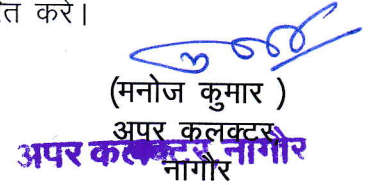 त करे।
(मनोज कुमार )
अपर कलक्टर,
अपर कलक्टर नागौर
नागौर